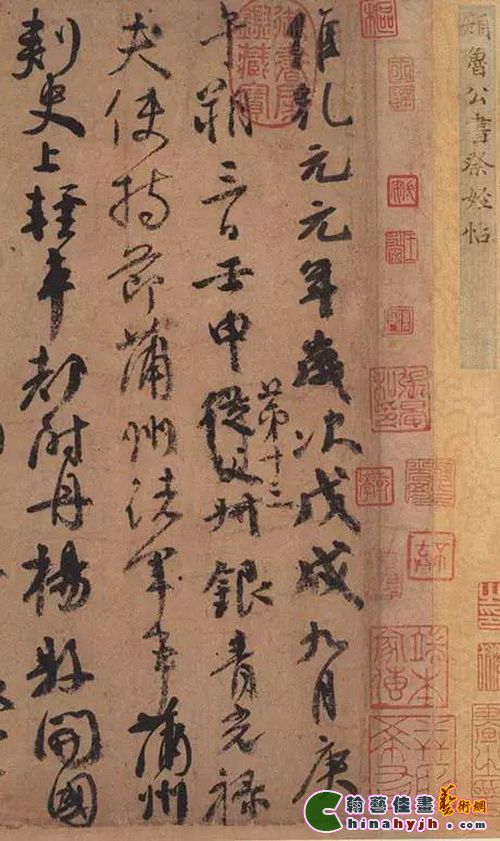 顏魯公書祭姪帖
維乾元元年歲次戊戌九月庚
午朔三日壬申第十三從父叔銀青光祿
夫使持節蒲州諸軍事蒲州
刺史上輕車都尉丹楊縣開國
御書房鑑藏寶
翰藝佳畫藝術網
Chinahyjh.com